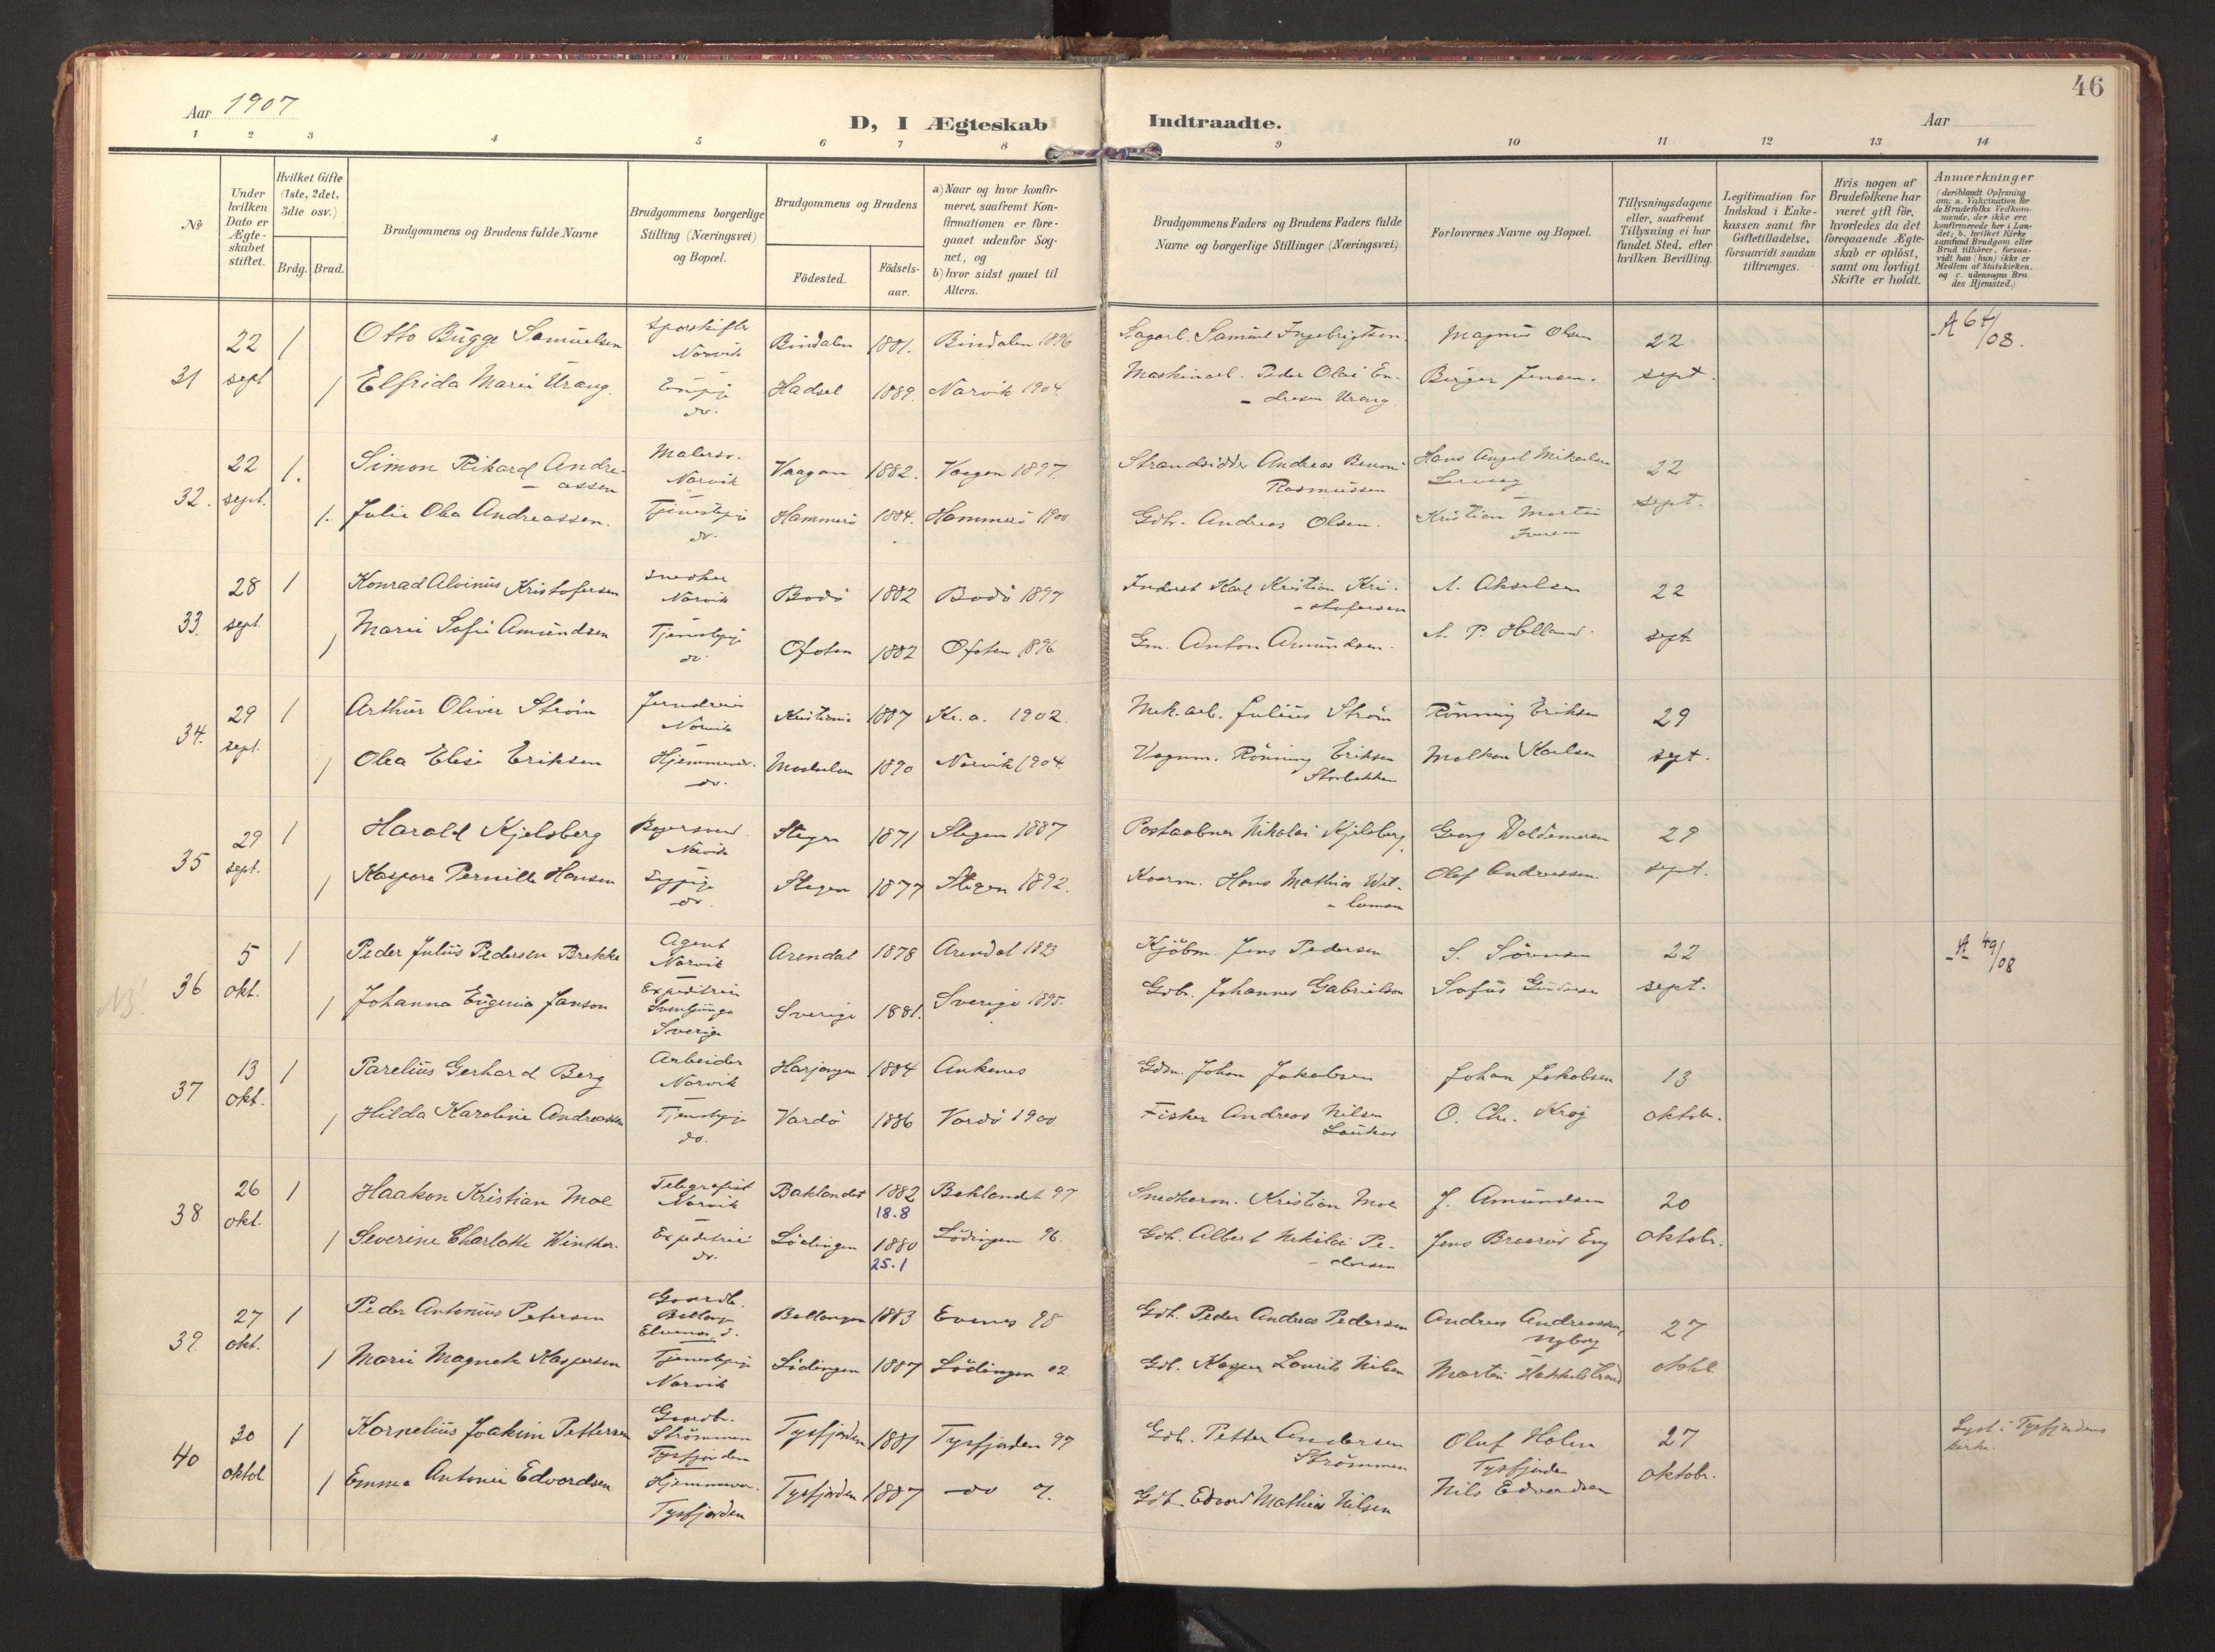 46
Aar 1907
D, I Ægteskab Indtraadte.
Aar
1 2 3 4 5 6 7 8 9 10 11 12 13 14
№
Under hvilken Dato er Ægte-skabet stiftet.
Hvilket Gifte (1ste, 2det, 3die osv.)
Brdg. Brud.
Brudgommens og Brudens fulde Navne
Brudgommens borgerlige Stilling (Næringsvei) og Bopæl.
Brudgommens og Brudens
Födested.
Födsels-aar.
a) Naar og hvor konfir-meret, saafremt Kon-firmationen er fore-gaaet udenfor Sog-net, og
b) hvor sidst gaaet til Alters.
Brudgommens Faders og Brudens Faders fulde Navne og borgerlige Stillinger (Næringsvei)
Forlovernes Navne og Bopæl.
Tillysningsdagene eller, saafremt Tillysning ei har fundet Sted, efter hvilken Bevilling.
Legitimation for Indskud i Enke-kassen samt for Giftetilladelse, forsaavidt saadan tiltrænges.
Hvis nogen af Brudefolkene har været gift för, hvorledes da det foregaaende Ægte-skab er oplöst, samt om lovligt Skifte er holdt.
Anmærkninger
(deriblandt Oplysning om: a. Vakcination for de Brudefolks Vedkom-mende, der ikke ere konfirmerede her i Lan-det; b. hvilket Kirke samfund Brudgom eller Brud tilhörer, forsaa-vidt han (hun) ikke er Medlem af Statskirken, og c. udensogns Bru des Hjemsted.)
31 22 sept 1 Otto Bugge Samuelsen Sporskifter Narvik Bindalen 1881. Bindalen 1896 Sagarb. Samuel Ingebrigtsen Magnus Olsen 22 sept. A 64/08.
1 Elfrida Marie Urang. do. Hadsel 1889. Narvik 1904. Maskinarb. Peder Olai En- Urang. Birger Jensen.
32. 22 sept. 1. Simon Rikard Andre-assen Malersv. Narvik Vaagan 1882. Vaagan 1897. Strandsidder Andreas Benoni Rasmussen Hans Angel Mikalsen 22 sept.
1. Julie Olea Andreassen. Tjenestepige do. Hammerö 1884. Hammerö 1900 Gdbr. Andreas Olsen. Kristian Martin
33. 28 sept. 1 Konrad Alvinus Kristofersen Snedker Narvik Bodö 1882 Bodö 1897 Inderst Karl Kristian Kri-stofersen A. Akselsen 22 sept.
1 Marie Sofie Amundsen Tjenestepige do. Ofoten 1882 Ofoten 1896 Gm. Anton Amundsen. A. P. Holland.
34. 29 sept. 1 Arthur Oliver Ström Jerndreier Narvik Kristiania 1887 Kr.a. 1902. Mek. arb. Julius Ström Rönning Eriksen 29 sept.
1 Olea Elise Eriksen Hjemmev. do. 1890 Narvik 1904. Vognm. Rönning Eriksen Storbekken Malkon Karlsen
35 29 sept. 1 Harald Kjelsberg Bagersvend. Narvik Steigen 1871 Steigen 1887 Postaabner Nikolai Kjelsberg. Georg Valdemarsen 29 sept.
1 Kaspara Pernille Hansen Sypige do. Steigen 1877 Steigen 1892. Hans Mathias Wil-lumsen Olaf Andreassen.
NB! 36 5 okt. 1 Peder Julius Pedersen Brekke Agent Narvik Arendal 1878 Arendal 1893 Kjöbm. Jens Pedersen S. Sörensen 22 sept. A 49/08
1 Johanna Eugenia Janson Expeditrice Svenljunga Sverige Sverige 1881. Sverige 1895. Gdbr. Johannes Gabrielson Sofus
37 13 okt. 1 Parelius Gerhard Berg Arbeider Narvik Harjangen 1884 Ankenes Gdbr. Johan Jakobsen Johan Jakobsen 13 oktobr.
1 Hilda Karoline Andreassen Tjenestepige do. Vardö 1886 Vardö 1900 Fisker Andreas Nilsen O. Chr. Krog
38 26 okt. 1 Haakon Kristian Moe Telegrafist Narvik Baklandet 1882 18.8 Baklandet 97 Snedkerm. Kristian Moe J. Amundsen 20 oktobr.
1 Severine Charlotte Winther. Expeditrice do. Lödingen 1880 25.1 Lödingen 96. Gdb. Albert Nikolai Pe-dersen Jens
39. 27 okt. 1 Peder Antonius Petersen Gaardb. Ballangen 1883 Evenes 98 Gdb. Peder Andreas Pedersen Andreas Andreassen, Nyborg 27 oktbr
1 Marie Magnete Kaspersen Tjenestepige Narvik Lödingen 1887 Lödingen 02. Gdb. Kasper Laurits Nilsen Martin
40 30 oktbr 1 Kornelius Joakim Pettersen Gaardbr. Strömmen Tysfjorden Tysfjorden 1881 Tysfjorden 97 Gdb. Petter Andersen Strömmen Oluf Holm Tysfjorden 27 oktobr. Lyst i Tysfjordens kirke.
1 Emma Antonie Edvardsen Hjemmev. Tysfjorden Tysfjorden 1887 do Gdb. Edvard Mathias Nilsen Nils Edvardsen